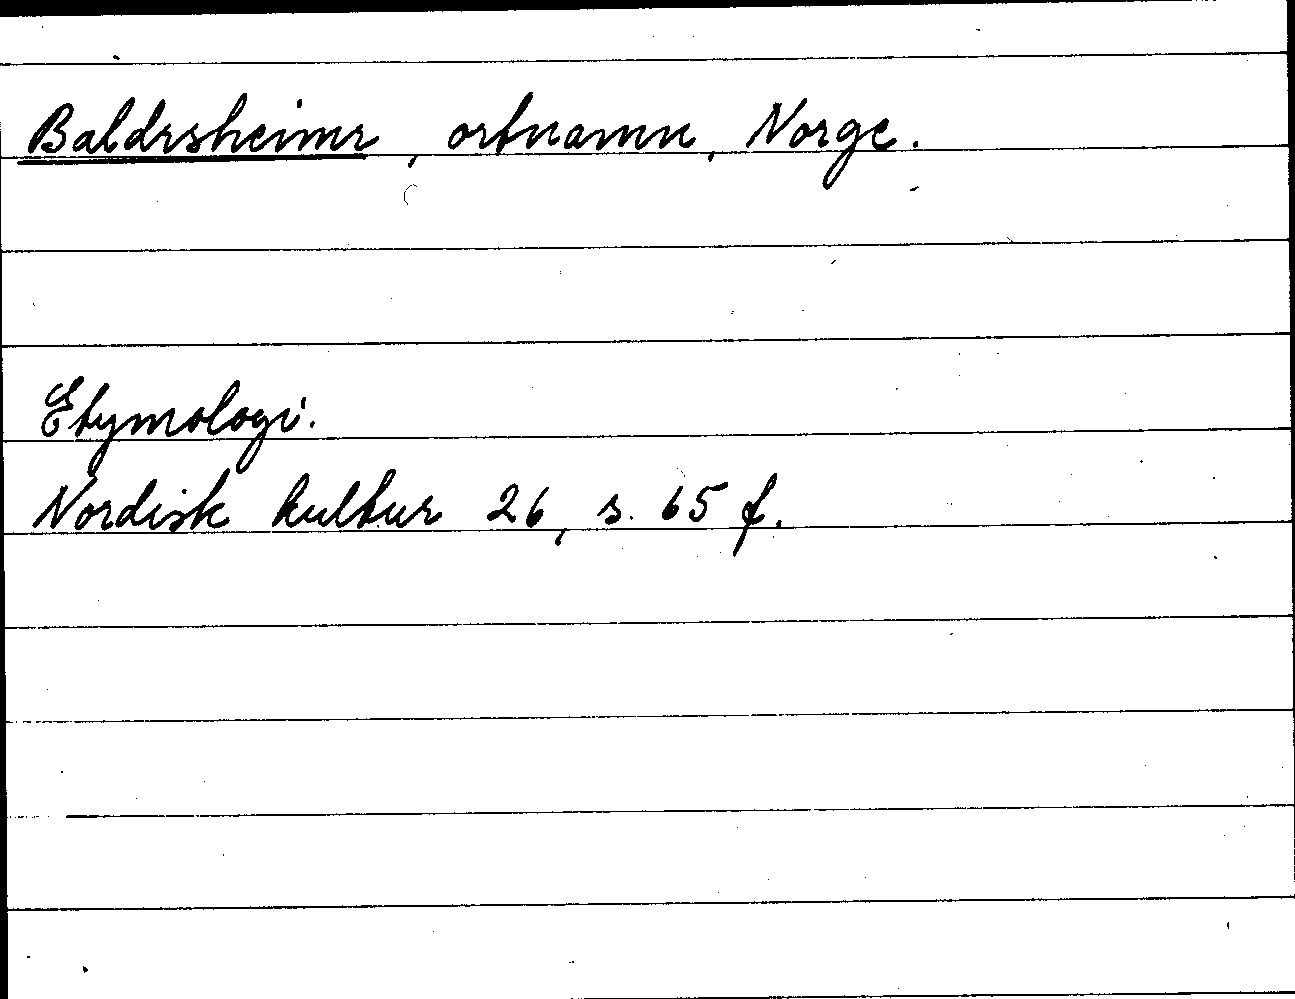 Baldrsheimr, ortnamn, Norge.
Etymologi.
Nordisk kultur 26, s. 65 f.